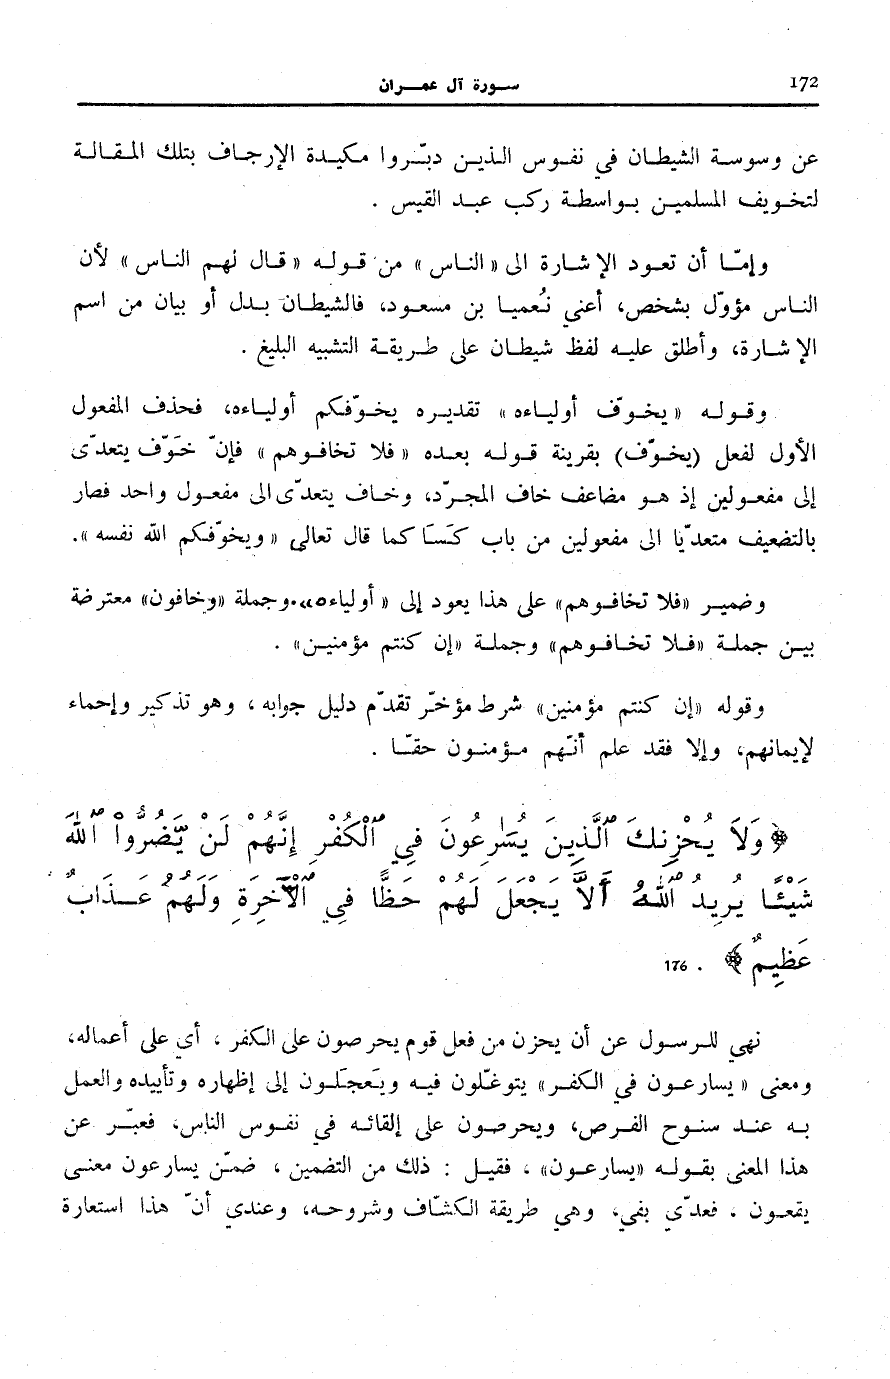 172 سورة آل عمران
عن وسوسة الشيطان في نفوس الذين دبّروا مكيدة الإرجاف بتلك المقالة
لتخويف المسلمين بواسطة ركب عبد القيس .
وإمّا أن تعود الإشارة الى « الناس » من قوله « قال لهم الناس » لأن
الناس مؤوّل بشخص، أعني نُعميا بن مسعود، فالشيطان بدل أو بيان من اسم
الإشارة، وأطلق عليه لفظ شيطان على طريقة التشبيه البليغ .
وقوله « يخوّف أولياءه » تقديره يخوّفكم أولياءه، فحذف المفعول
الأول لفعل (يخوّف) بقرينة قوله بعده « فلا تخافوهم » فإنّ خَوّف يتعدّى
إلى مفعولين إذ هو مضاعف خاف المجرّد، وخاف يتعدّى الى مفعول واحد فصار
بالتضعيف متعدّيا الى مفعولين من باب كَسَا كما قال تعالى « ويخوّفكم الله نفسه ».
وضمير «فلا تخافوهم» على هذا يعود إلى « أولياءه». وجملة «وخافون» معترضة
بين جملة «فلا تخافوهم» وجملة «إن كنتم مؤمنين» .
وقوله «إن كنتم مؤمنين» شرط مؤخّر تقدّم دليل جوابه ، وهو تذكير وإحماء
لإيمانهم، وإلا فقد علم أنّهم مؤمنون حقّا .
﴿ وَلَا يُحْزِنكَ ٱلَّذِينَ يُسَٰرِعُونَ فِي ٱلْكُفْرِ إِنَّهُمْ لَنْ يَّضُرُّواْ ٱللَّهَ
شَيْـًٔا يُرِيدُ ٱللَّهُ أَلاَّ يَجْعَلَ لَهُمْ حَظًّا فِي ٱلْأٓخِرَةِ وَلَهُمْ عَذَابٌ
عَظِيمٌ ﴾ . 176
نهي للرسول عن أن يحزن من فعل قوم يحرصون على الكفر ، أي على أعماله،
ومعنى « يسارعون في الكفر» يتوغّلون فيه ويَعجَلون إلى إظهاره وتأييده والعمل
به عند سنوح الفرص، ويحرصون على إلقائه في نفوس الناس، فعبّر عن
هذا المعنى بقوله «يسارعون» ، فقيل : ذلك من التضمين ، ضمّن يسارعون معنى
يقعون ، فعدّي بفي، وهي طريقة الكشّاف وشروحه، وعندي أنّ هذا استعارة